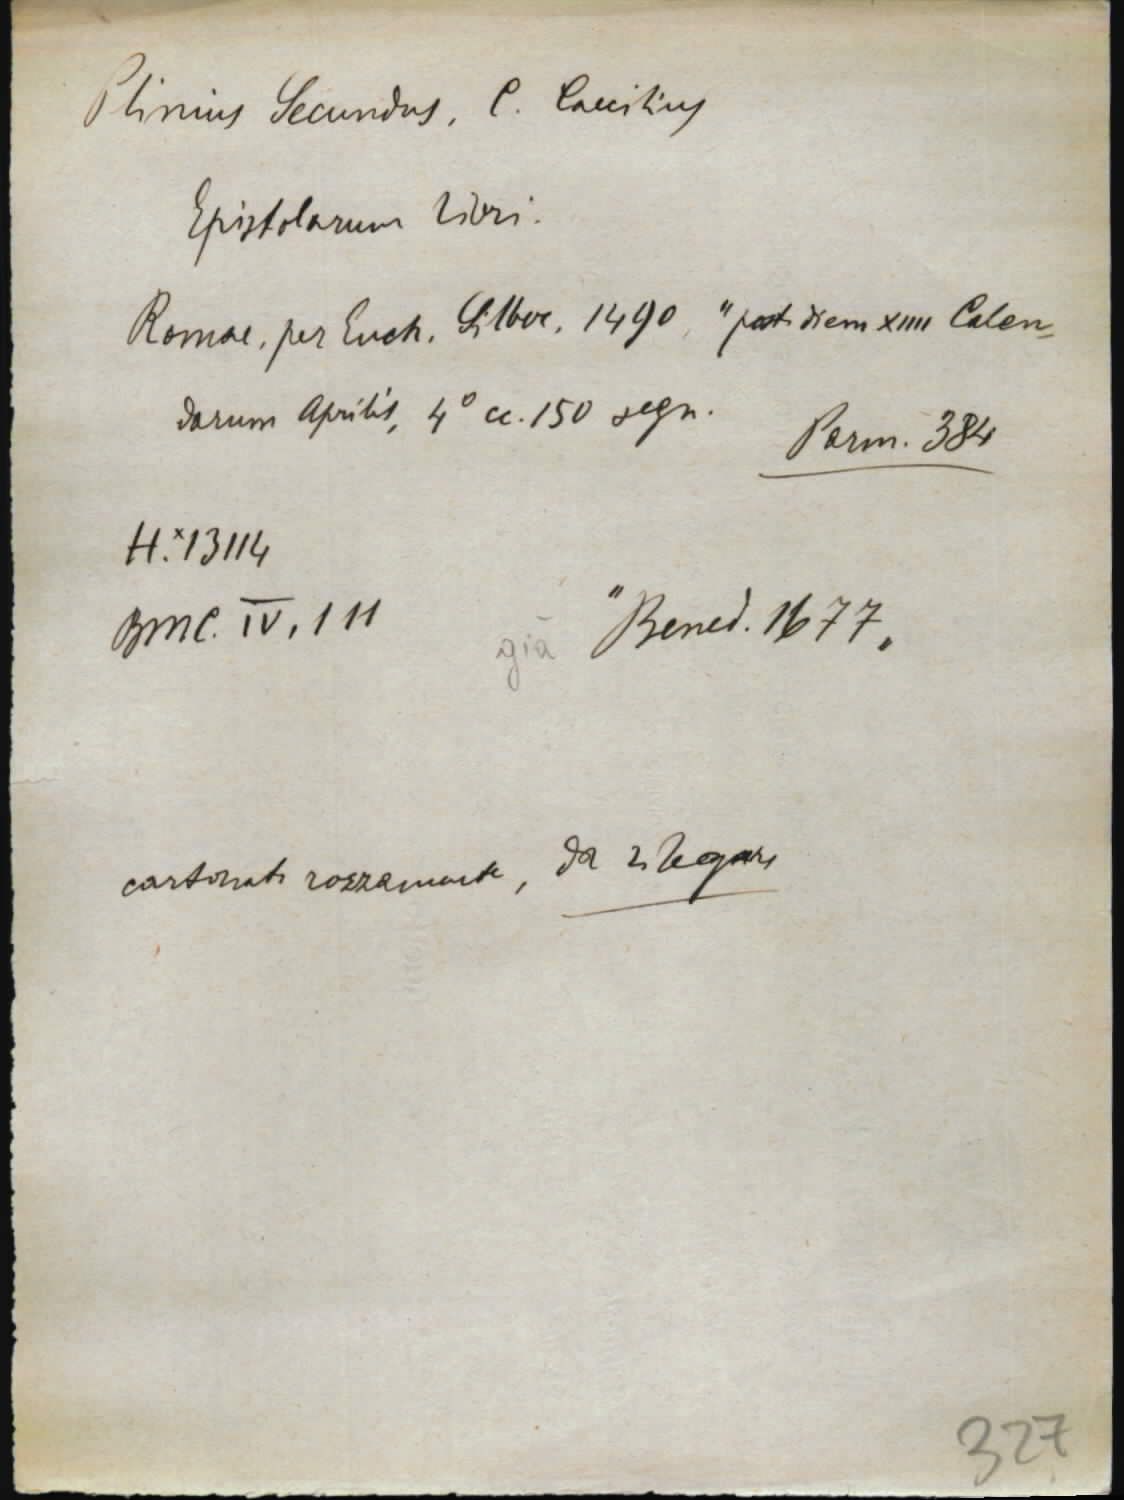 Plinius Secundus, C. Caecilius
Epistolarum libri.
Romae, per Euch. Silber, 1490, "post diem XIIII Calen=
darum Aprilis, 4° cc. 150 segn.
Parm. 384
H.ˣ13114
BMC. IV, 111
già "Bened. 1677"
cartonato rozzamente, da rilegare
327